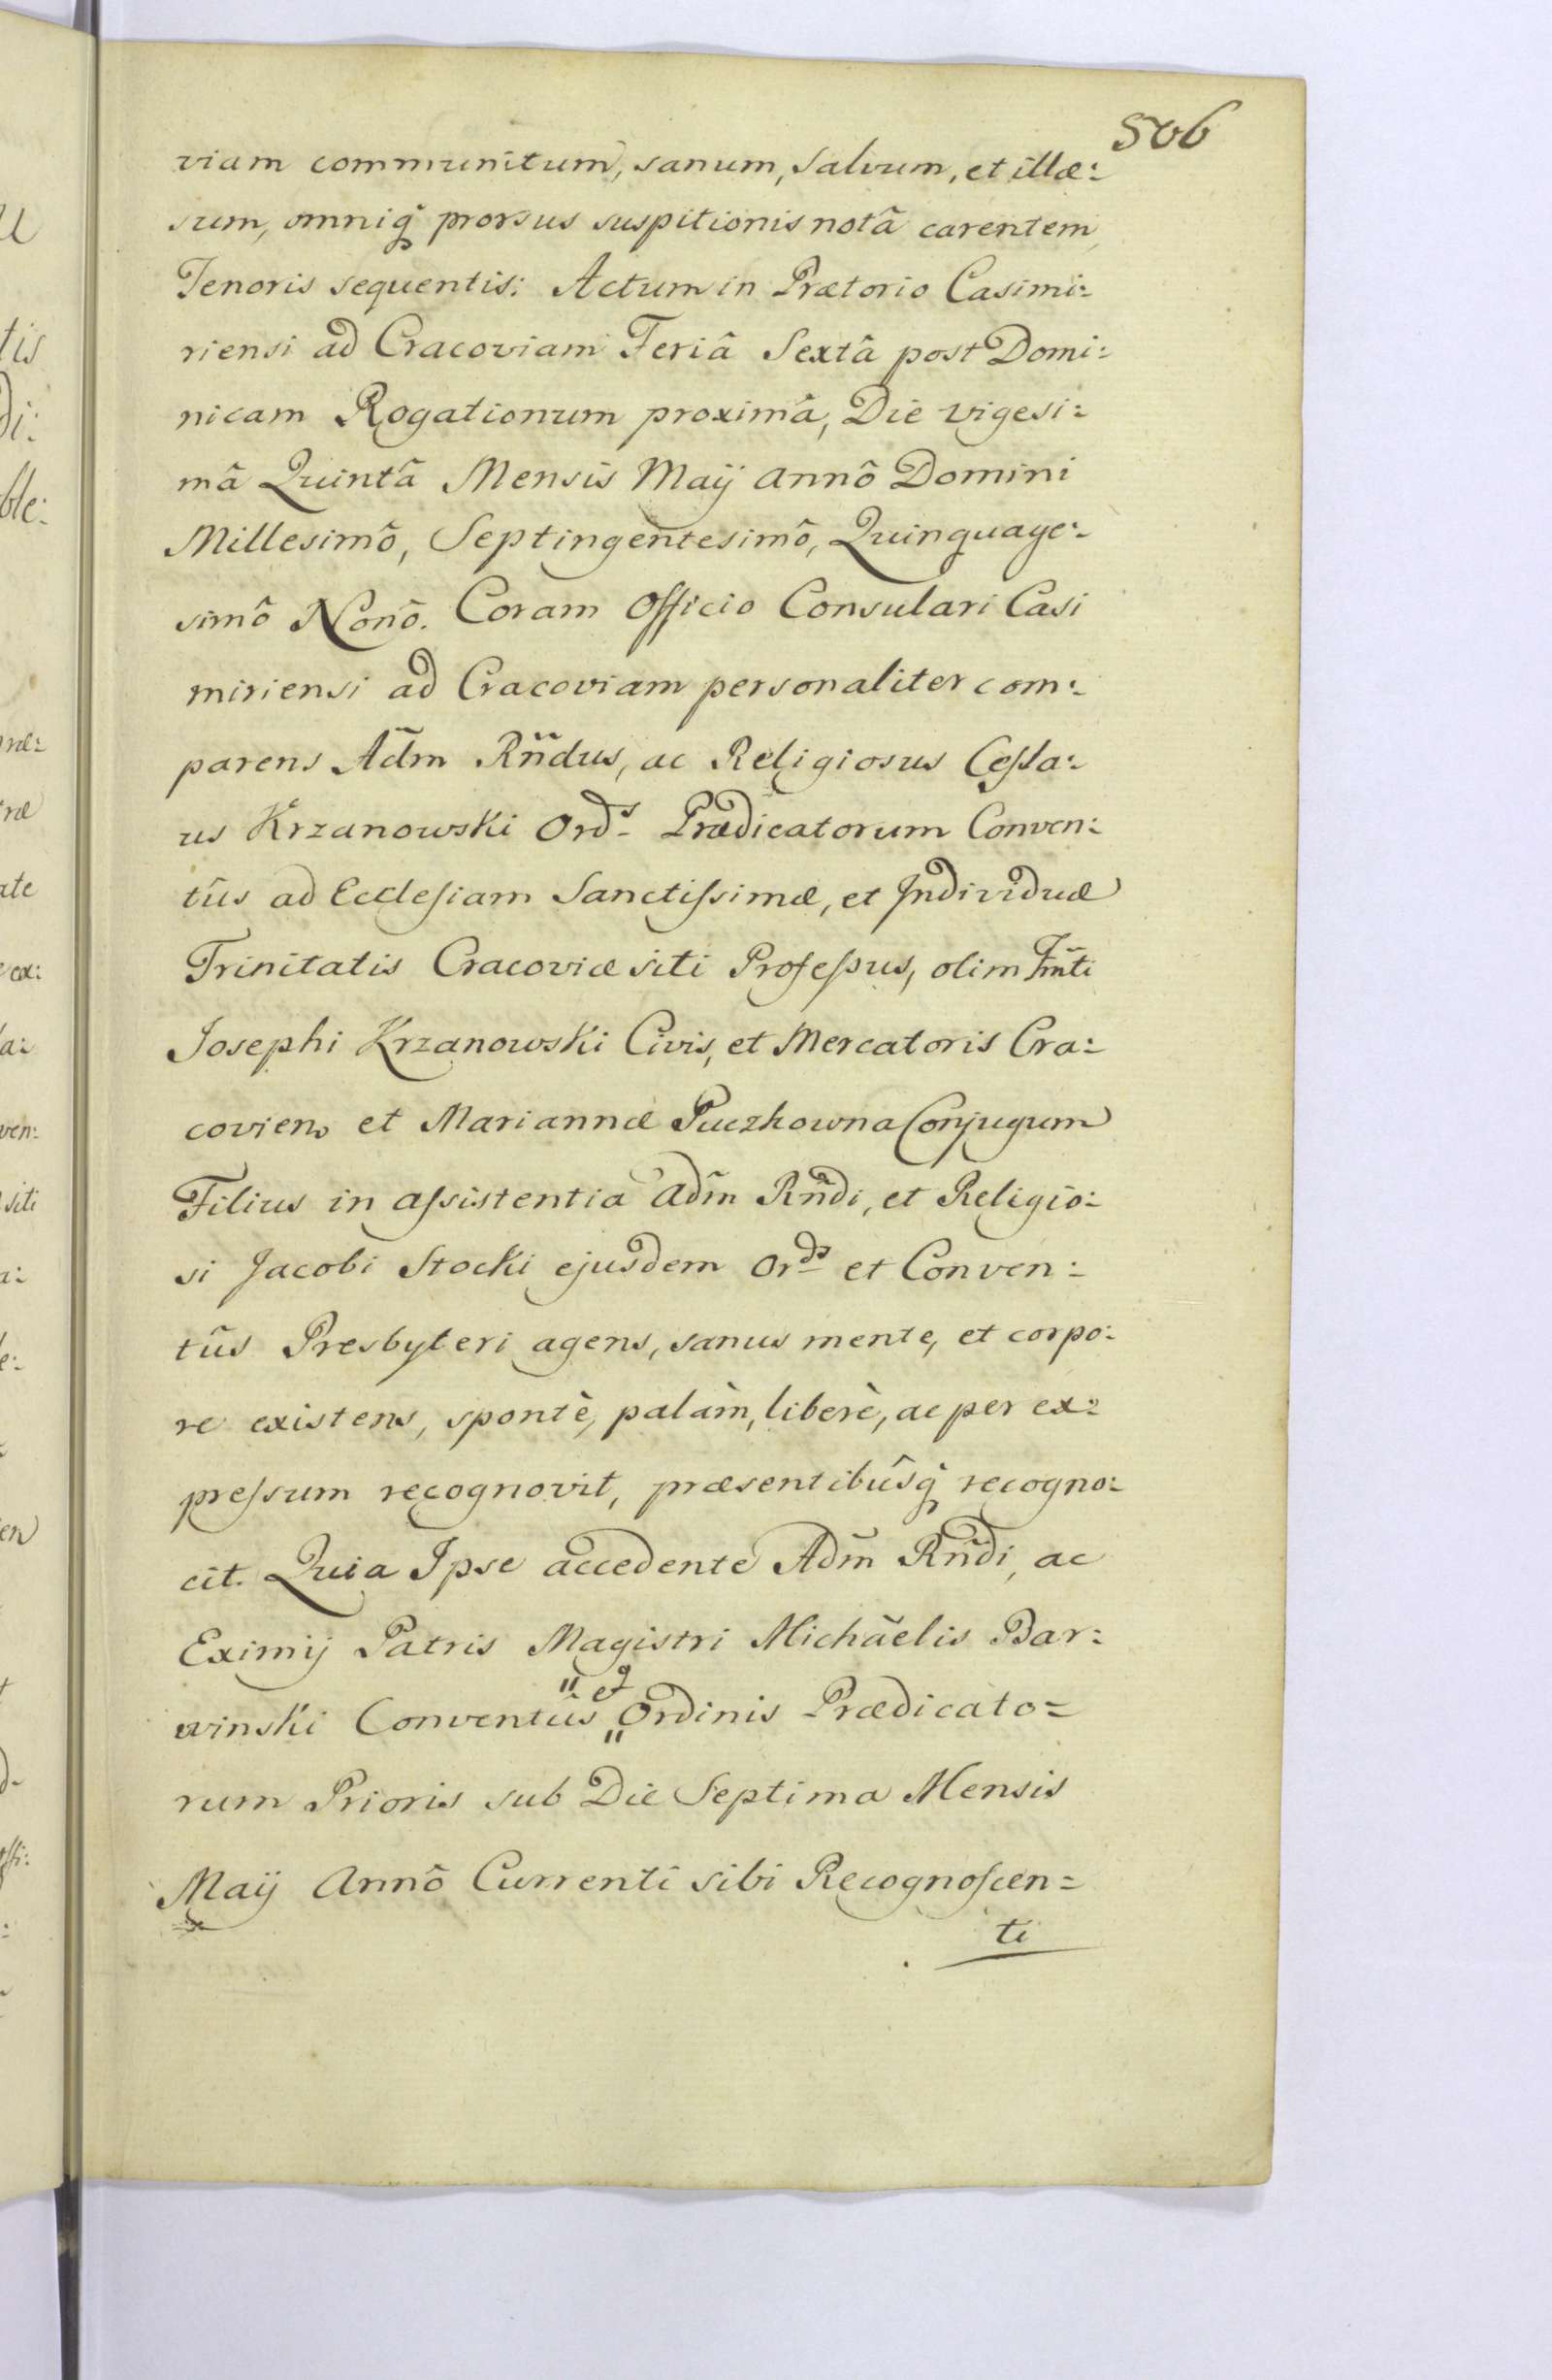 506
viam communitum, sanum, salvum, et illæ:
sum, omniq̃ prorsus suspitionis notâ carentem,
Tenoris sequentis: Actum in Prætorio Casimi:
riensi ad Cracoviam Feriâ Sextâ post Domi:
nicam Rogationum proximâ, Die vigesi:
mâ Quintâ Mensis Maÿ Annô Domini
Millesimô, Septingentesimô, Quinquage:
simô Nonô. Coram Officio Consulari Casi
miriensi ad Cracoviam personaliter com:
parens Adm̃ Rñdus, ac Religiosus Ceſla:
us Krzanowski Ords Prædicatorum Conven:
tûs ad Eccleſiam Sanctiſsimæ, et Individuæ
Trinitatis Cracoviæ siti Profeſsus, olim
Josephi Krzanowski Civis, et Mercatoris Cra:
covien et Mariannæ Puczkowna Conjugum
Filius in aſsistentia Adm̃ Rñdi, et Religio:
si Jacobi Stocki ejusdem Ords et Conven:
tûs Presbyteri agens, sanus mente, et corpo:
re existens, spontè, palàm, liberè, ac per ex:
preſsum recognovit, præsentibûsq̃ recogno:
cit. Quia Ipse accedente Adm̃ Rñdi, ac
Eximij Patris Magistri Michäelis Bar:
winski Conventûs et Ordinis Prædicato=
rum Prioris sub Die Septima Mensis
Maÿ Annô Currenti sibi Recognoſcen=
ti